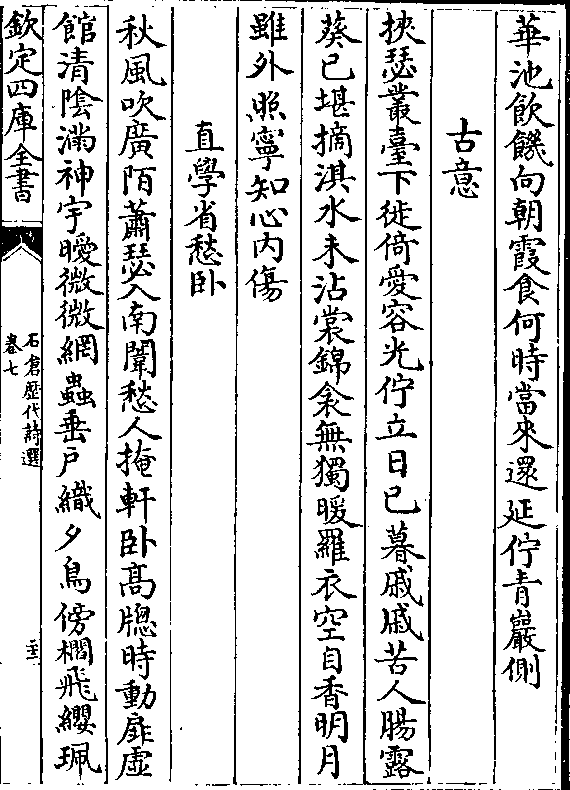 華池飲饑向朝霞食何時當來還延佇青巖側
古意
挾瑟叢臺下徙倚愛容光佇立日已暮戚戚苦人腸露
葵已堪摘淇水未沾裳錦衾無獨暖羅衣空自香明月
雖外照寧知心内傷
直學省愁卧
秋風吹廣陌蕭瑟入南闈愁人掩軒卧髙牕時動扉虚
館清隂滿神宇曖微微網蟲垂戶織夕鳥傍櫩飛纓珮
欽定四庫全書
石倉歴代詩選
卷七